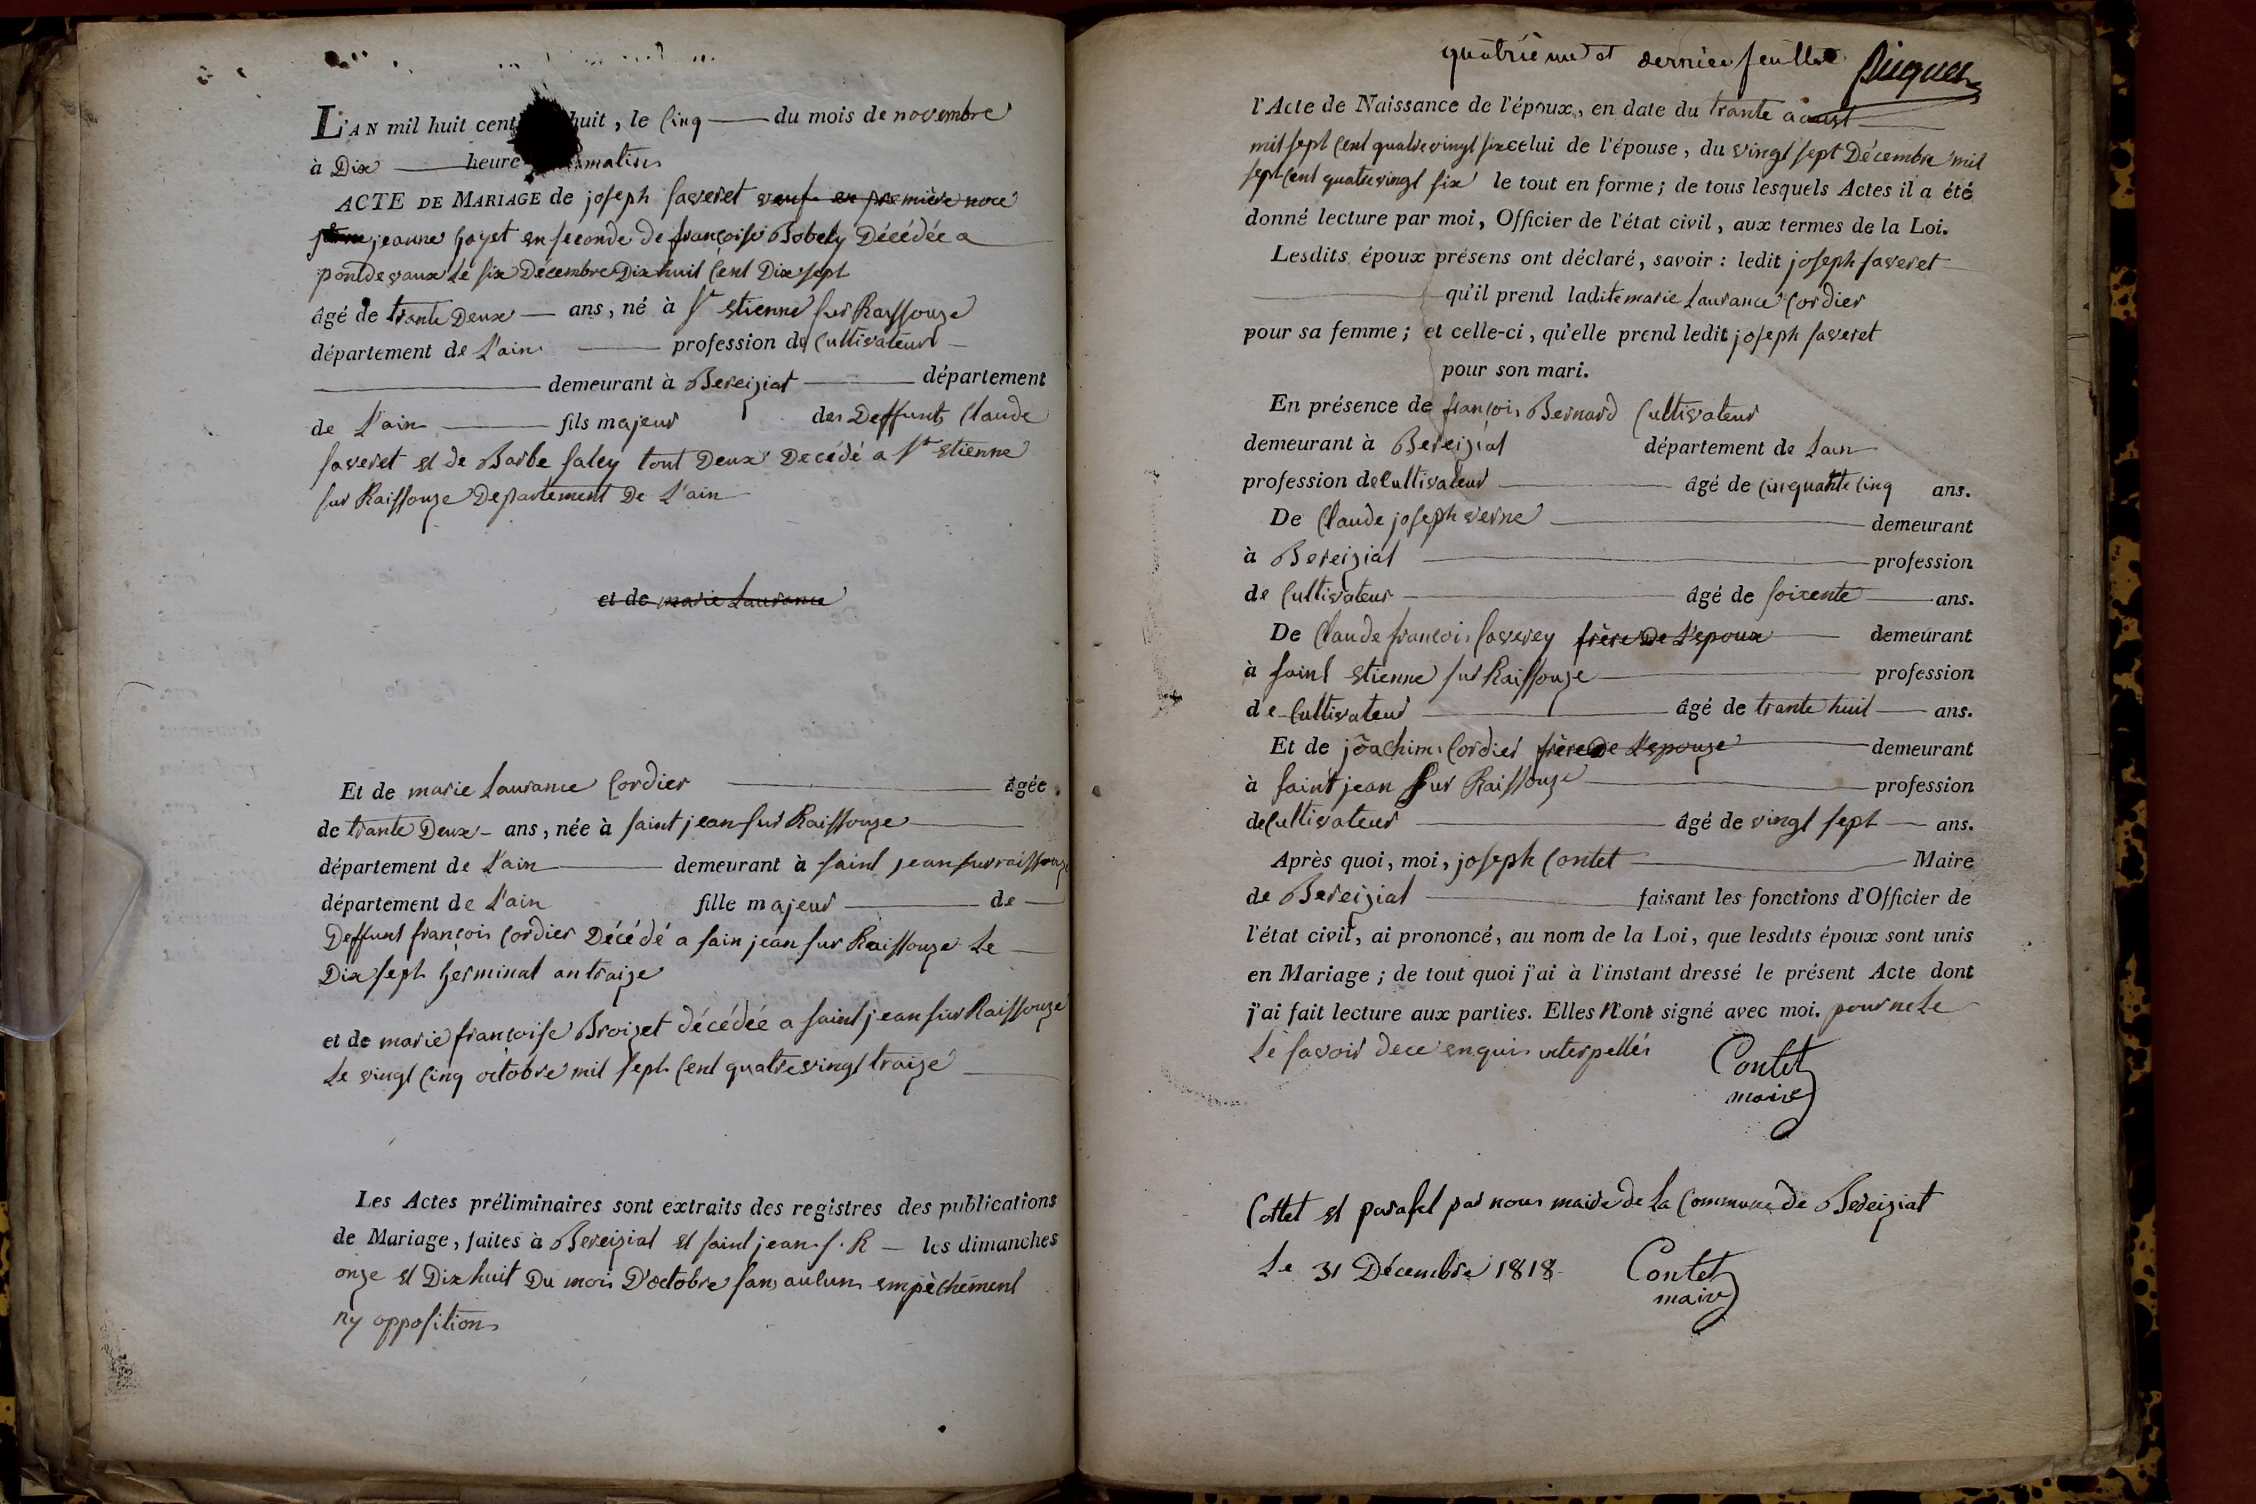 L'AN mil huit cent huit, le Cinq du mois de novembre
à Dix heure matin
ACTE DE MARIAGE de joseph faveret veuf en première noce
jeanne goyet en seconde de françoise Bobely Décédée a
pontdevaux Le six Décembre Dix huit Cent Dix sept
âgé de trante Deux ans, né à St Etienne sur Raissouze
département de L'ain profession de Cultivateur
demeurant à Bereiziat département
de L'ain fils majeur des Deffunts Claude
faveret et de Barbe faley tout Deux Decédé a St Etienne
sur Raissouze Departement De L'ain
et de marie Laurance
Et de marie Laurance Cordier âgée
de trante Deux ans, née à saint jean sur Raissouze
département de L'ain demeurant à saint jean sur raissouze
département de L'ain fille majeur de
Deffunt françois Cordier Décédé a sain jean sur Raissouze Le
Dix sept Germinal an traize
et de marie françoise Broizet décédée a saint jean sur Raissouze
Le vingt Cinq octobre mil sept Cent quatrevingt traize
Les Actes préliminaires sont extraits des registres des publications
de Mariage, faites à Bereiziat et saint jean s. R les dimanches
onze et Dix huit Du mois D'octobre sans aucun empèchement
ny opposition
quatrieme et dernier feuillet
l'Acte de Naissance de l'époux, en date du trante aoust
mil sept Cent quatrevingt six celui de l'épouse, du vingt sept Décembre mil
sept Cent quatrevingt six le tout en forme; de tous lesquels Actes il a été
donné lecture par moi, Officier de l'état civil, aux termes de la Loi.
Lesdits époux présens ont déclaré, savoir: ledit joseph faveret
qu'il prend ladite marie Laurance Cordier
pour sa femme; et celle-ci, qu'elle prend ledit joseph faveret
pour son mari.
En présence de françois Bernard Cultivateur
demeurant à Bereiziat département de Lain
profession de Cultivateur âgé de Cinquante Cinq ans.
De Claude joseph verne demeurant
à Bereiziat profession
de Cultivateur âgé de soixente ans.
De Claude françois faverey frère De L'epoux demeurant
à saint Etienne sur Raissouze profession
de Cultivateur âgé de trante huit ans.
Et de joachim Cordier frère De L'epouze demeurant
à saint jean sur Raissouze profession
de Cultivateur âgé de vingt sept ans.
Après quoi, moi, joseph Contet Maire
de Bereiziat faisant les fonctions d'Officier de
l'état civil, ai prononcé, au nom de la Loi, que lesdits époux sont unis
en Mariage; de tout quoi j'ai à l'instant dressé le présent Acte dont
j'ai fait lecture aux parties. Elles N'ont signé avec moi. pour ne Le
Le savoir dece enquis interpellés
Contet
maire
Cottet et parafet par nous maire de La Commune de Bereiziat
Le 31 Décembre 1818
Contet
maire